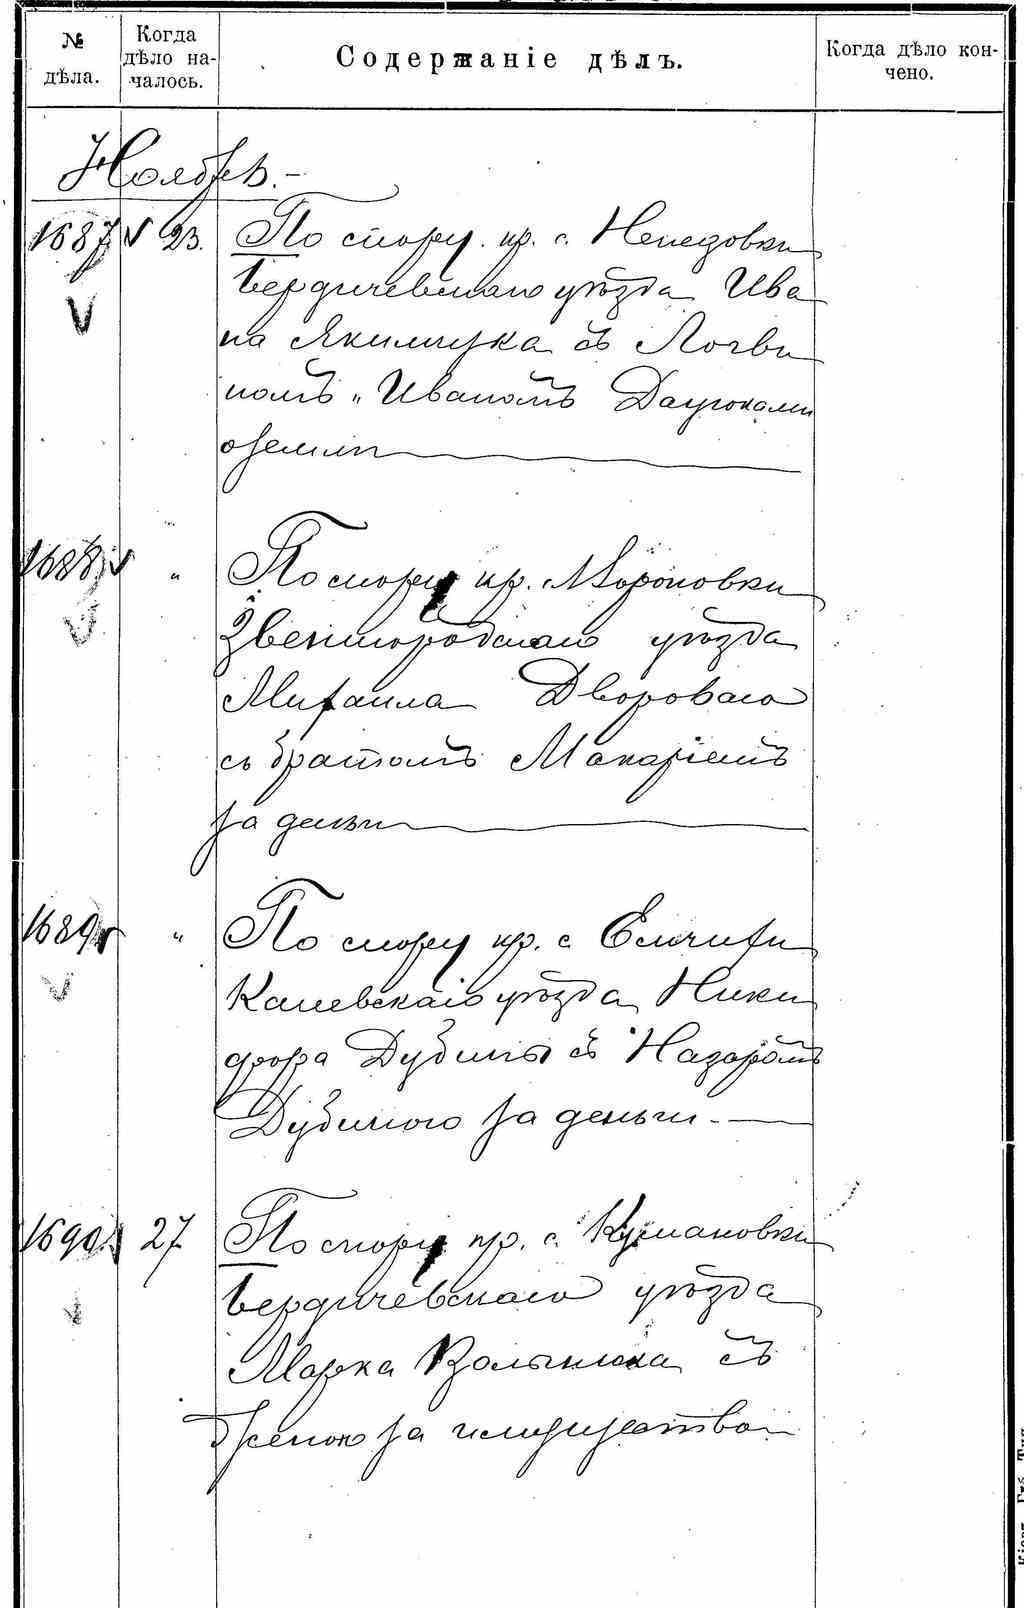 № дѣла.
Когда дѣло на-
чалось.
Содержаніе дѣлъ.
Когда дѣло кон-
чено.
Ноябрь.-
1687 v 23. По спору кр. с. Непедовки
Бердичевскаго уѣзда Ива
на Якимчука съ Логви
номъ и Иваномъ
о землѣ
1688 v " По спору кр. с. Вороновки
Звенигородскаго уѣзда
Михаила Дворового
съ братомъ Макаріемъ
за деньги
1689 v " По спору кр. с.
Каневскаго уѣзда Ники
фора Дубины съ Назаромъ
Дубиною за деньги. -
1690 27 По спору кр. с. Кумановки
Бердичевскаго уѣзда
Марка Волынюка съ
женою за имущество